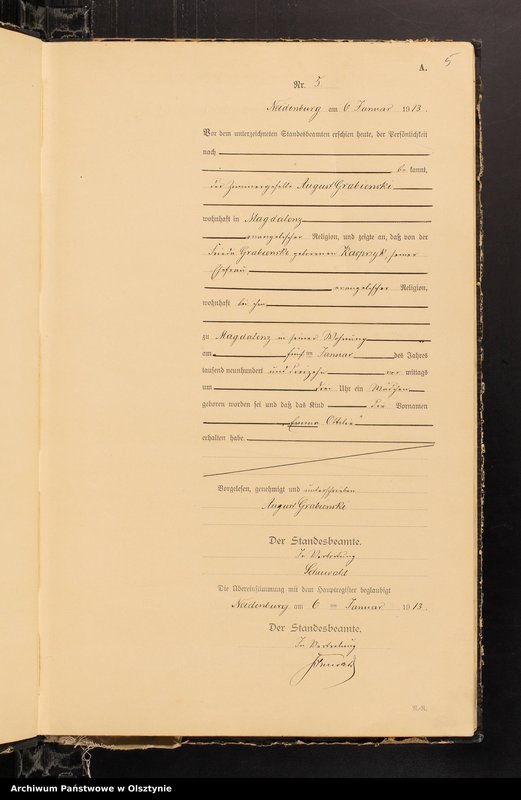 5
A.
Nr. 5
Neidenburg am 6 Januar 1913.
Vor dem unterzeichneten Standesbeamten erschien heute, der Persönlichkeit
nach
bekannt,
der Zimmergeselle August Grabienski
wohnhaft in Magdalenz
evangelischer Religion, und zeigte an, daß von der
Frieda Grabienski geborenen Kasprzyk, seiner
Ehefrau
evangelischer Religion,
wohnhaft bei ihm
zu Magdalenz in seiner Wohnung
am fünften Januar des Jahres
tausend neunhundert und dreizehn vor mittags
um drei Uhr ein Mädchen
geboren worden sei und daß das Kind die Vornamen
„Emma Ottilie“
erhalten habe.
Vorgelesen, genehmigt und unterschrieben
August Grabienski
Der Standesbeamte.
In Vertretung
Der Übereinstimmung mit dem Hauptregister beglaubigt
Neidenburg am 6 ten Januar 1913.
Der Standesbeamte.
In Vertretung
Archiwum Państwowe w Olsztynie